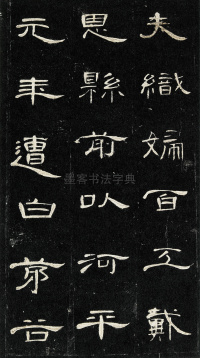 夫織婦百工戴
恩縣前以河平
元年遭白茅谷
墨客书法字典